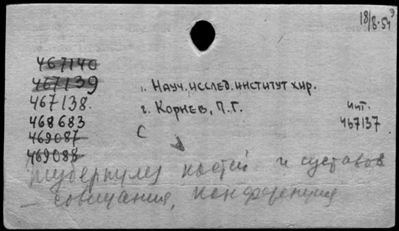 18/8-54
467140
467139
467138.
468683
469087
469088
1. Науч. исслед. институт хир.
2. Корнев, П.Г.
С
инт.
467137
туберкулез костей и суставов
— совещания, конференция